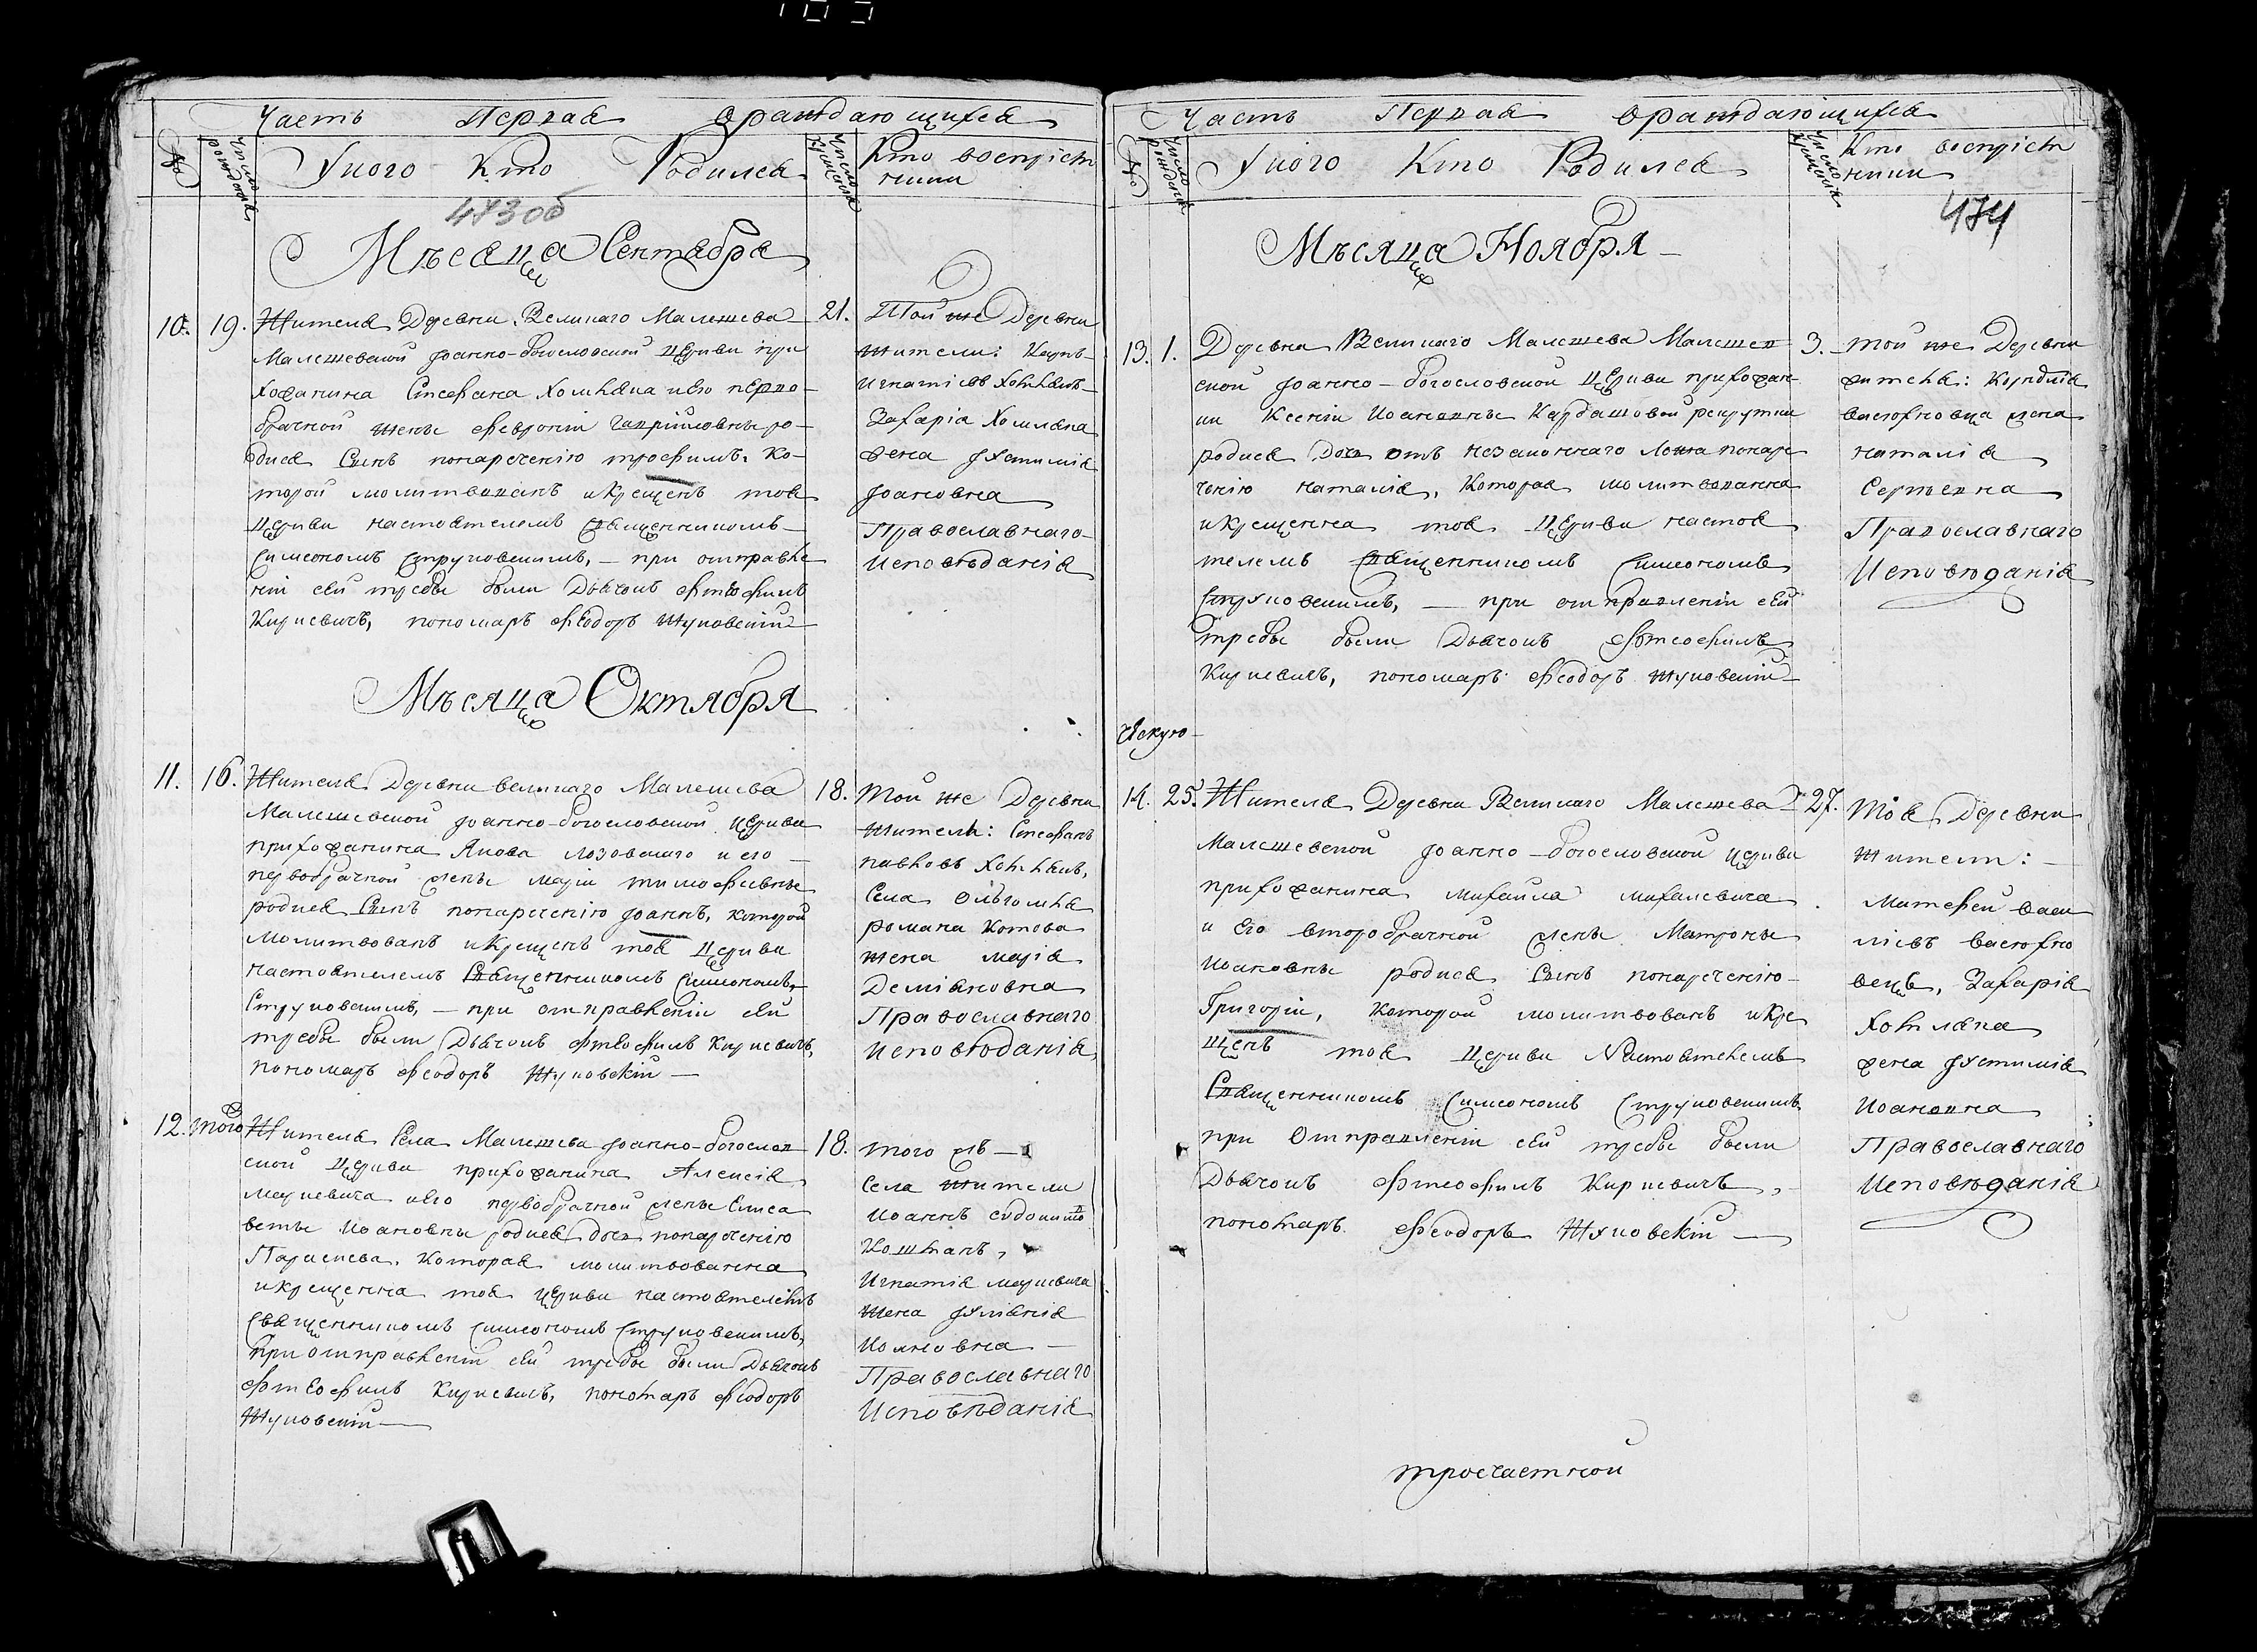 Часть Первая ораждающихся
№
Число рожденія
Уного Кто Родился
Число крещенія
Кто воспріем
ники
473 об
Мѣсяца Сентября
10. 19. Жителя Деревни Великаго Малешева
Малешевской Іоанно-богословской Церкви при
хожанина Стефана Хомляка иего перво-
брачной жены Февроніи Гавріиловны ро-
дися Сынъ понареченію трофимъ. Ко-
торой молитвованъ икрещенъ тоя
Церкви настоятелемъ Священникомъ
Симеономъ Струковскимъ, — при отправле
ніи сей требы были Дьячокъ Фтеофилъ
Киркевичъ, пономаръ Феодоръ Жуковскій
21. Той же Деревни
жители: Карпъ
Игнатіевъ Хомлякъ
Захарія Хомляка
жена Іустиміа
Іоановна
Православнаго
Исповѣданія
Мѣсяца Октября
11. 16. Жителя Деревни великаго Малешева
Малешевской Іоанно-богословской Церкви
прихожанина Якова Лозовскаго и его
первобрачной жены Маріи тимофѣевны
родися Сынъ понареченію Іоаннъ, которой
Молитвованъ икрещенъ тоя Церкви
настоятелемъ Священникомъ Симеономъ
Струковскимъ, — при отправленіи сей
требы были Дьячокъ Фтеофилъ Киркевичъ,
пономаръ Феодоръ Жуковскій —
18. Той же Деревни
жители: Стефанъ
павловъ Хомлякъ,
Села Ольгомля
романа Котова
жена марія
Деміяновна
Православнаго
Исповѣданія
12. того Жителя Села Малешева Іоанно-богослов
ской Церкви прихожанина Алексія
Маркевича иего первобрачной жены Елиса
веты Иоановны родися дочь понареченію
Параскева. Которая молитвованна
икрещенна тоя церкви настоятелемъ
Священникомъ Симеономъ Струковскимъ,
При отправленіи сей требы были Дьячокъ
Фтеофилъ Киркевичъ, пономаръ Феодоръ
Жуковскій —
18. того жъ —
Села жители
Иоаннъ
Кошманъ,
Игнатія маркевича
жена Іуліанія
Иоановна —
Православнаго
Исповѣданія
Часть Первая ораждающихся
№
Число рожденія
Уного Кто Родился
Число крещенія
Кто воспріем
ники
474
Мѣсяца Ноября —
13. 1. Деревни Великаго Малешева Малешев
ской Іоанно-богословской Церкви прихожан
ки Ксеніи Иоановны Кардашовой рекрутки
родися Дочь отъ незаконнаго Ложа понаре
ченію наталія, Которая молитвованна
икрещенна тоя Церкви настоя
телемъ Священникомъ Симеономъ
Струковскимъ, — при отправленіи сей
требы были Дьячокъ Фтеофилъ
Киркевичъ, пономаръ Феодоръ Жуковскій
3. Той же Деревни
жителя: Корнилія
васюховца жена
наталія
Сергѣевна
Православнаго
Исповѣданія
14. 25. Жителя Деревни Великаго Малешева
Малешевской Іоанно-богословской церкви
прихожанина Михаила Михалевича
и Его второбрачной жены Матроны
Иоановны родися Сынъ понареченію
Григорій, которой молитвованъ икре
щенъ тоя Церкви Настоятелемъ
Священникомъ Симеономъ Струковскимъ
при Отправленіи сей требы были
Дьячокъ Фтеофилъ Киркевичъ,
пономаръ Феодоръ Жуковскій —
27. Тоя Деревни
жители:
Матфей васи
ліевъ васюхно
вецъ, Захарія
Хомляка
жена Іустимія
Иоановна
Православнаго
Исповѣданія